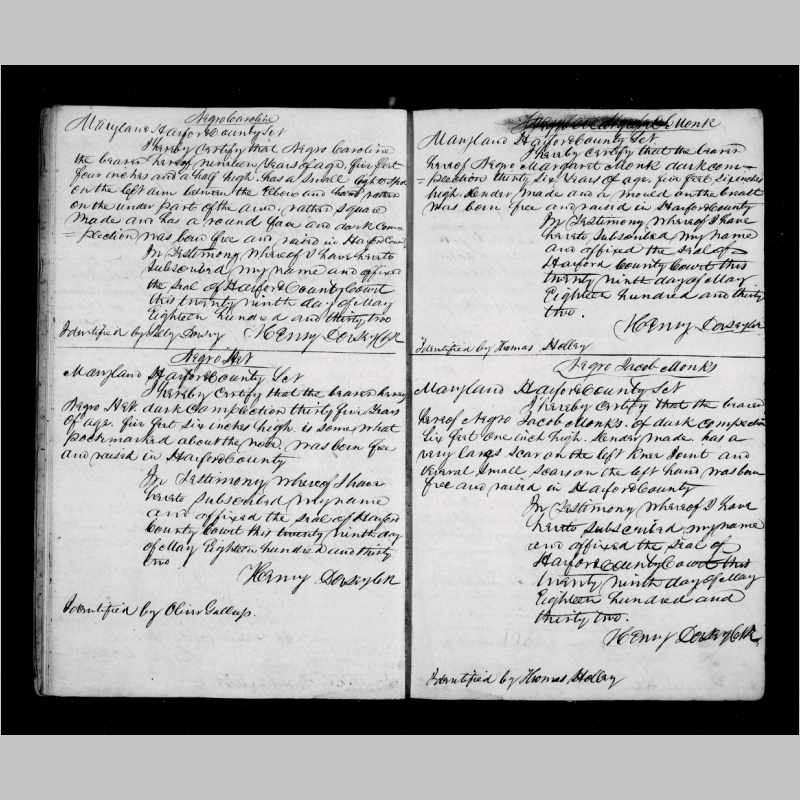 Negro Caroline
Maryland Harford County Sct
I hereby Certify that Negro Caroline
the bearer hereof nineteen Years of age, five feet
four inches and a half high. has a Small light Spot
on the left arm between the Elbow and hand rather
on the under part of the arm. rather Square
made and has a round face and dark Com=
=plection was born free and raised in Harford County
In Testimony whereof I have hereto
Subscribed my name and affixed
the Seal of Harford County Court
this twenty ninth day of May
Eighteen hundred and thirty two
Identified by Dorsey Henry Dorsey Clk
Negro
Maryland Harford County Sct
I hereby Certify that the bearer hereof
Negro dark Complection thirty five Years
of age. five feet six inches high. is some what
pock marked about the nose. was born free
and raised in Harford County
In Testimony whereof I have
hereto Subscribed my name
and affixed the Seal of Harford
County Court this twenty ninth day
of May Eighteen hundred and thirty
two
Henry Dorsey Clk
Identified by Oliver Gallup.
Monk
Maryland Harford County Sct
I hereby Certify that the bearer
hereof Negro Margaret Monk dark com=
=plection thirty six Years of age, five feet six inches
high. Slender made and a mould on the breast
was born free and raised in Harford County
In Testimony whereof I have
hereto Subscribed my name
and affixed the Seal of
Harford County Court this
twenty ninth day of May
Eighteen hundred and thirty
two.
Henry Dorsey Clk
Identified by Thomas Holley
Negro Jacob Monks
Maryland Harford County Sct
I hereby Certify that the bearer
hereof Negro Jacob Monks. of dark complection
Six feet one inch high. Slender made. has a
very large Scar on the left Knee Joint and
Several Small Scars on the left hand was born
free and raised in Harford County
In Testimony whereof I have
hereto Subscribed my name
and affixed the Seal of
Harford County Court this
twenty ninth day of May
Eighteen hundred and
thirty two.
Henry Dorsey Clk
Identified by Thomas Holley